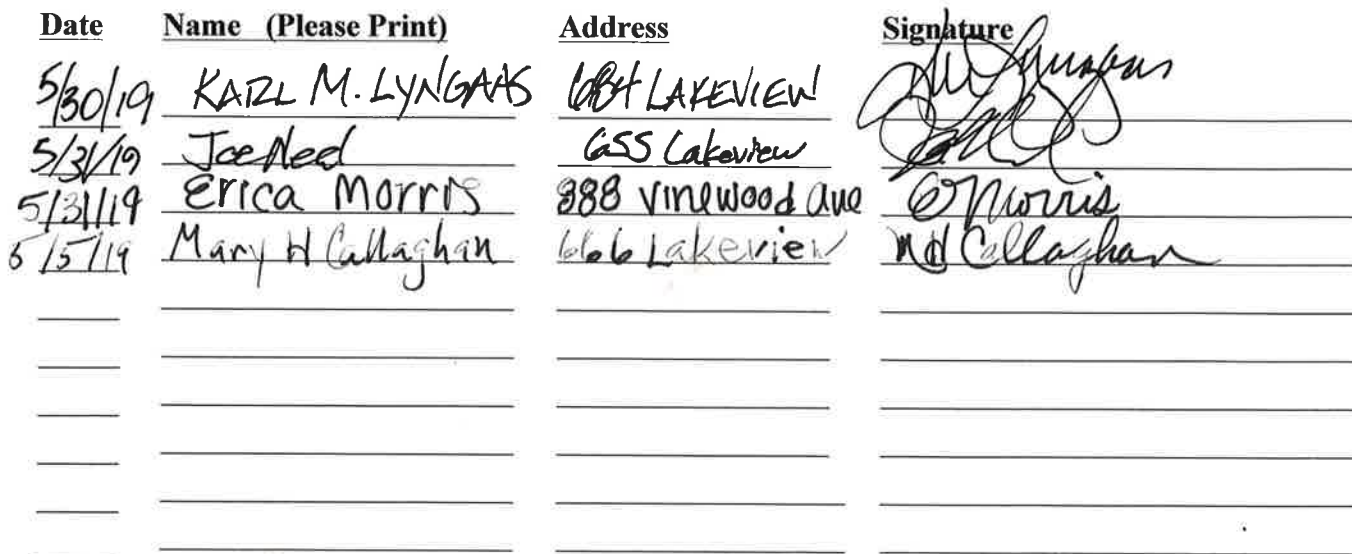 Date Name (Please Print) Address Signature
5/30/19 KARL M. LYNGAAS 684 LAKEVIEW
5/31/19 Joe Need 655 Lakeview
5/31/19 Erica Morris 888 Vinewood Ave E Morris
5/5/19 Mary H Callaghan 666 Lakeview MH Callaghan